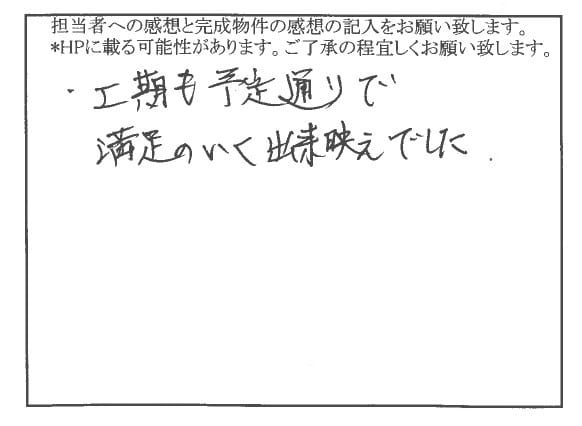 担当者への感想と完成物件の感想の記入をお願い致します。
*HPに載る可能性があります。ご了承の程宜しくお願い致します。
・工期も予定通りで
満足のいく出来映えでした.